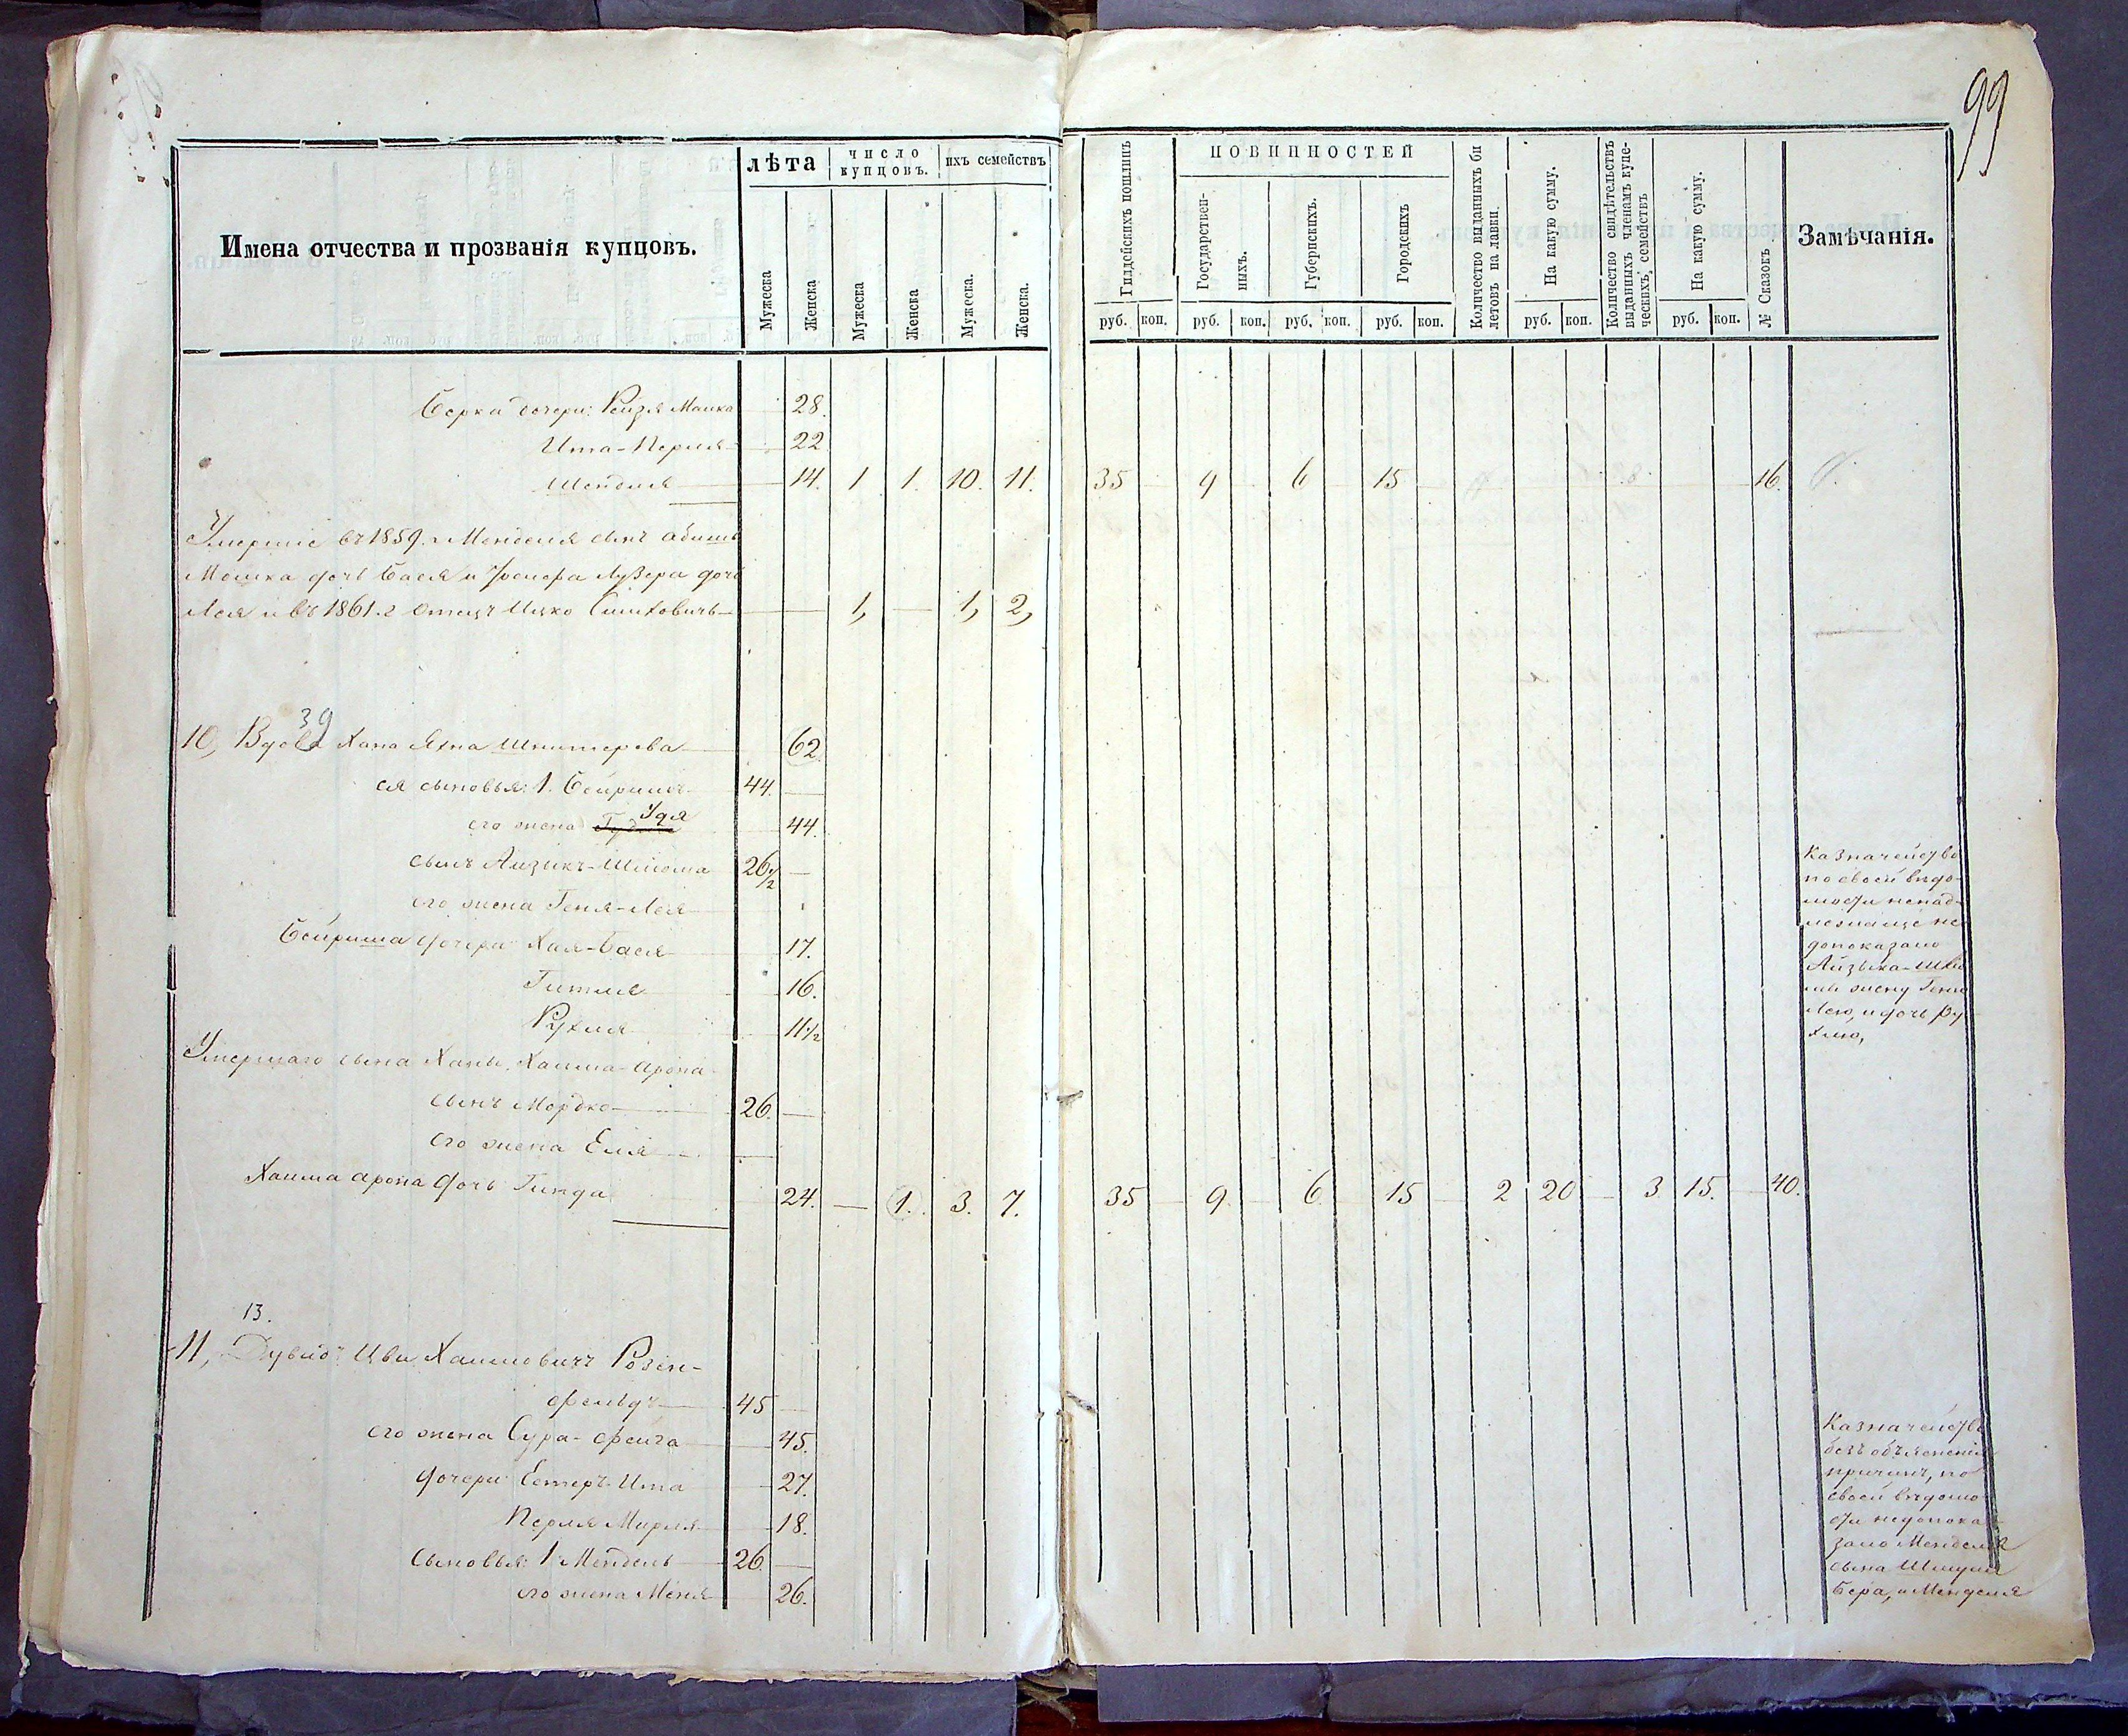 99
Имена отчества и прозванія купцовъ.
лѣта
число купцовъ.
ихъ семействъ
Мужеска
Женска
Мужеска
Женска
Мужеска.
Женска.
Гилдейскихъ пошлинъ
ПОВИННОСТЕЙ
Государствен-
ныхъ.
Губернскихъ.
Городскихъ
Количество выданныхъ би
летовъ на лавки.
На какую сумму.
Количество свидѣтельствъ
выданныхъ членамъ купе-
ческихъ, семействъ
На какую сумму.
№ Сказокъ
Замѣчанія.
руб. коп. руб. коп. руб. коп. руб. коп. руб. коп. руб. коп.
Берки дочери: Рейзя Малка 28.
Ита-Перля 22
Шейдля 14. 1 1. 10. 11. 35 9 6 15 16.
Умершіе въ 1859. г Менделя сынъ
Мошка дочь Бася и Лузера дочь
Лея и въ 1861. г отецъ Ицко 1, — 1, 2,
39
10, Вдова Хана Яхна Шнитерова 62.
ея сыновья: 1. Бейришъ 44. —
Удя
его жена 44.
сынъ Айзикъ-Шлиома 26 1/2 —
его жена Геня-Лея
Бейриша дочери Хая-Бася 17.
Гитля 16.
Рухля 11 1/2
Умершаго сына Ханы, Хаима-Арона
сынъ Мордко 26. —
его жена Еля —
Хаима Арона дочь Гинда 24. — 1. 3. 7. 35 9 6 15 2 20 — 3 15. — 40.
Казначейство
по своей вѣдо-
мости ненад-
лежаще не
допоказано
Айзыка-Шлио
мы жену Геню
Лею, и дочь Ру
хлю,
13.
11, Дувидъ Цви Хаимовичъ Розен-
фельдъ 45 —
его жена Сура-Фейга 45.
дочери Естеръ-Ита 27.
Перля Мирля 18.
сыновья: 1 Мендель 26. —
его жена Меня 26.
Казначейство
безъ объясненія
причинъ, по
своей вѣдомо
сти недопока
зано Менделя
сына Шмуля
Бера, и Менделя